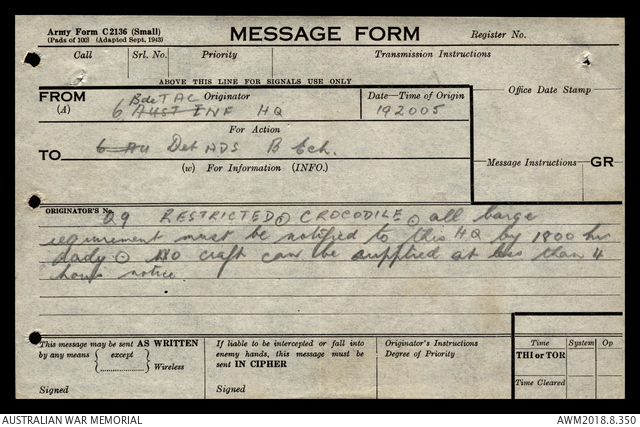 Army Form C2136 (Small)
(Pads of 100) (Adapted Sept. 1943)
MESSAGE FORM
Register No.
Call
Srl. No.
Priority
Transmission Instructions
ABOVE THIS LINE FOR SIGNALS USE ONLY
FROM
(A)
Originator
Bde TAC
6 AUST INF HQ
Date—Time of Origin
192005
Office Date Stamp
For Action
TO
6 Au Det NDS B Ech.
(w) For Information (INFO.)
Message Instructions
GR
ORIGINATOR'S No.
Q9 RESTRICTED ⊙ CROCODILE ⊙ all barge
requirement must be notified to this HQ by 1800 hr
daily ⊙ NO craft can be supplied at less than 4
hours notice
This message may be sent AS WRITTEN
by any means { except } Wireless
Signed
If liable to be intercepted or fall into
enemy hands, this message must be
sent IN CIPHER
Signed
Originator's Instructions
Degree of Priority
Time
System
Op
THI or TOR
Time Cleared
AUSTRALIAN WAR MEMORIAL
AWM2018.8.350